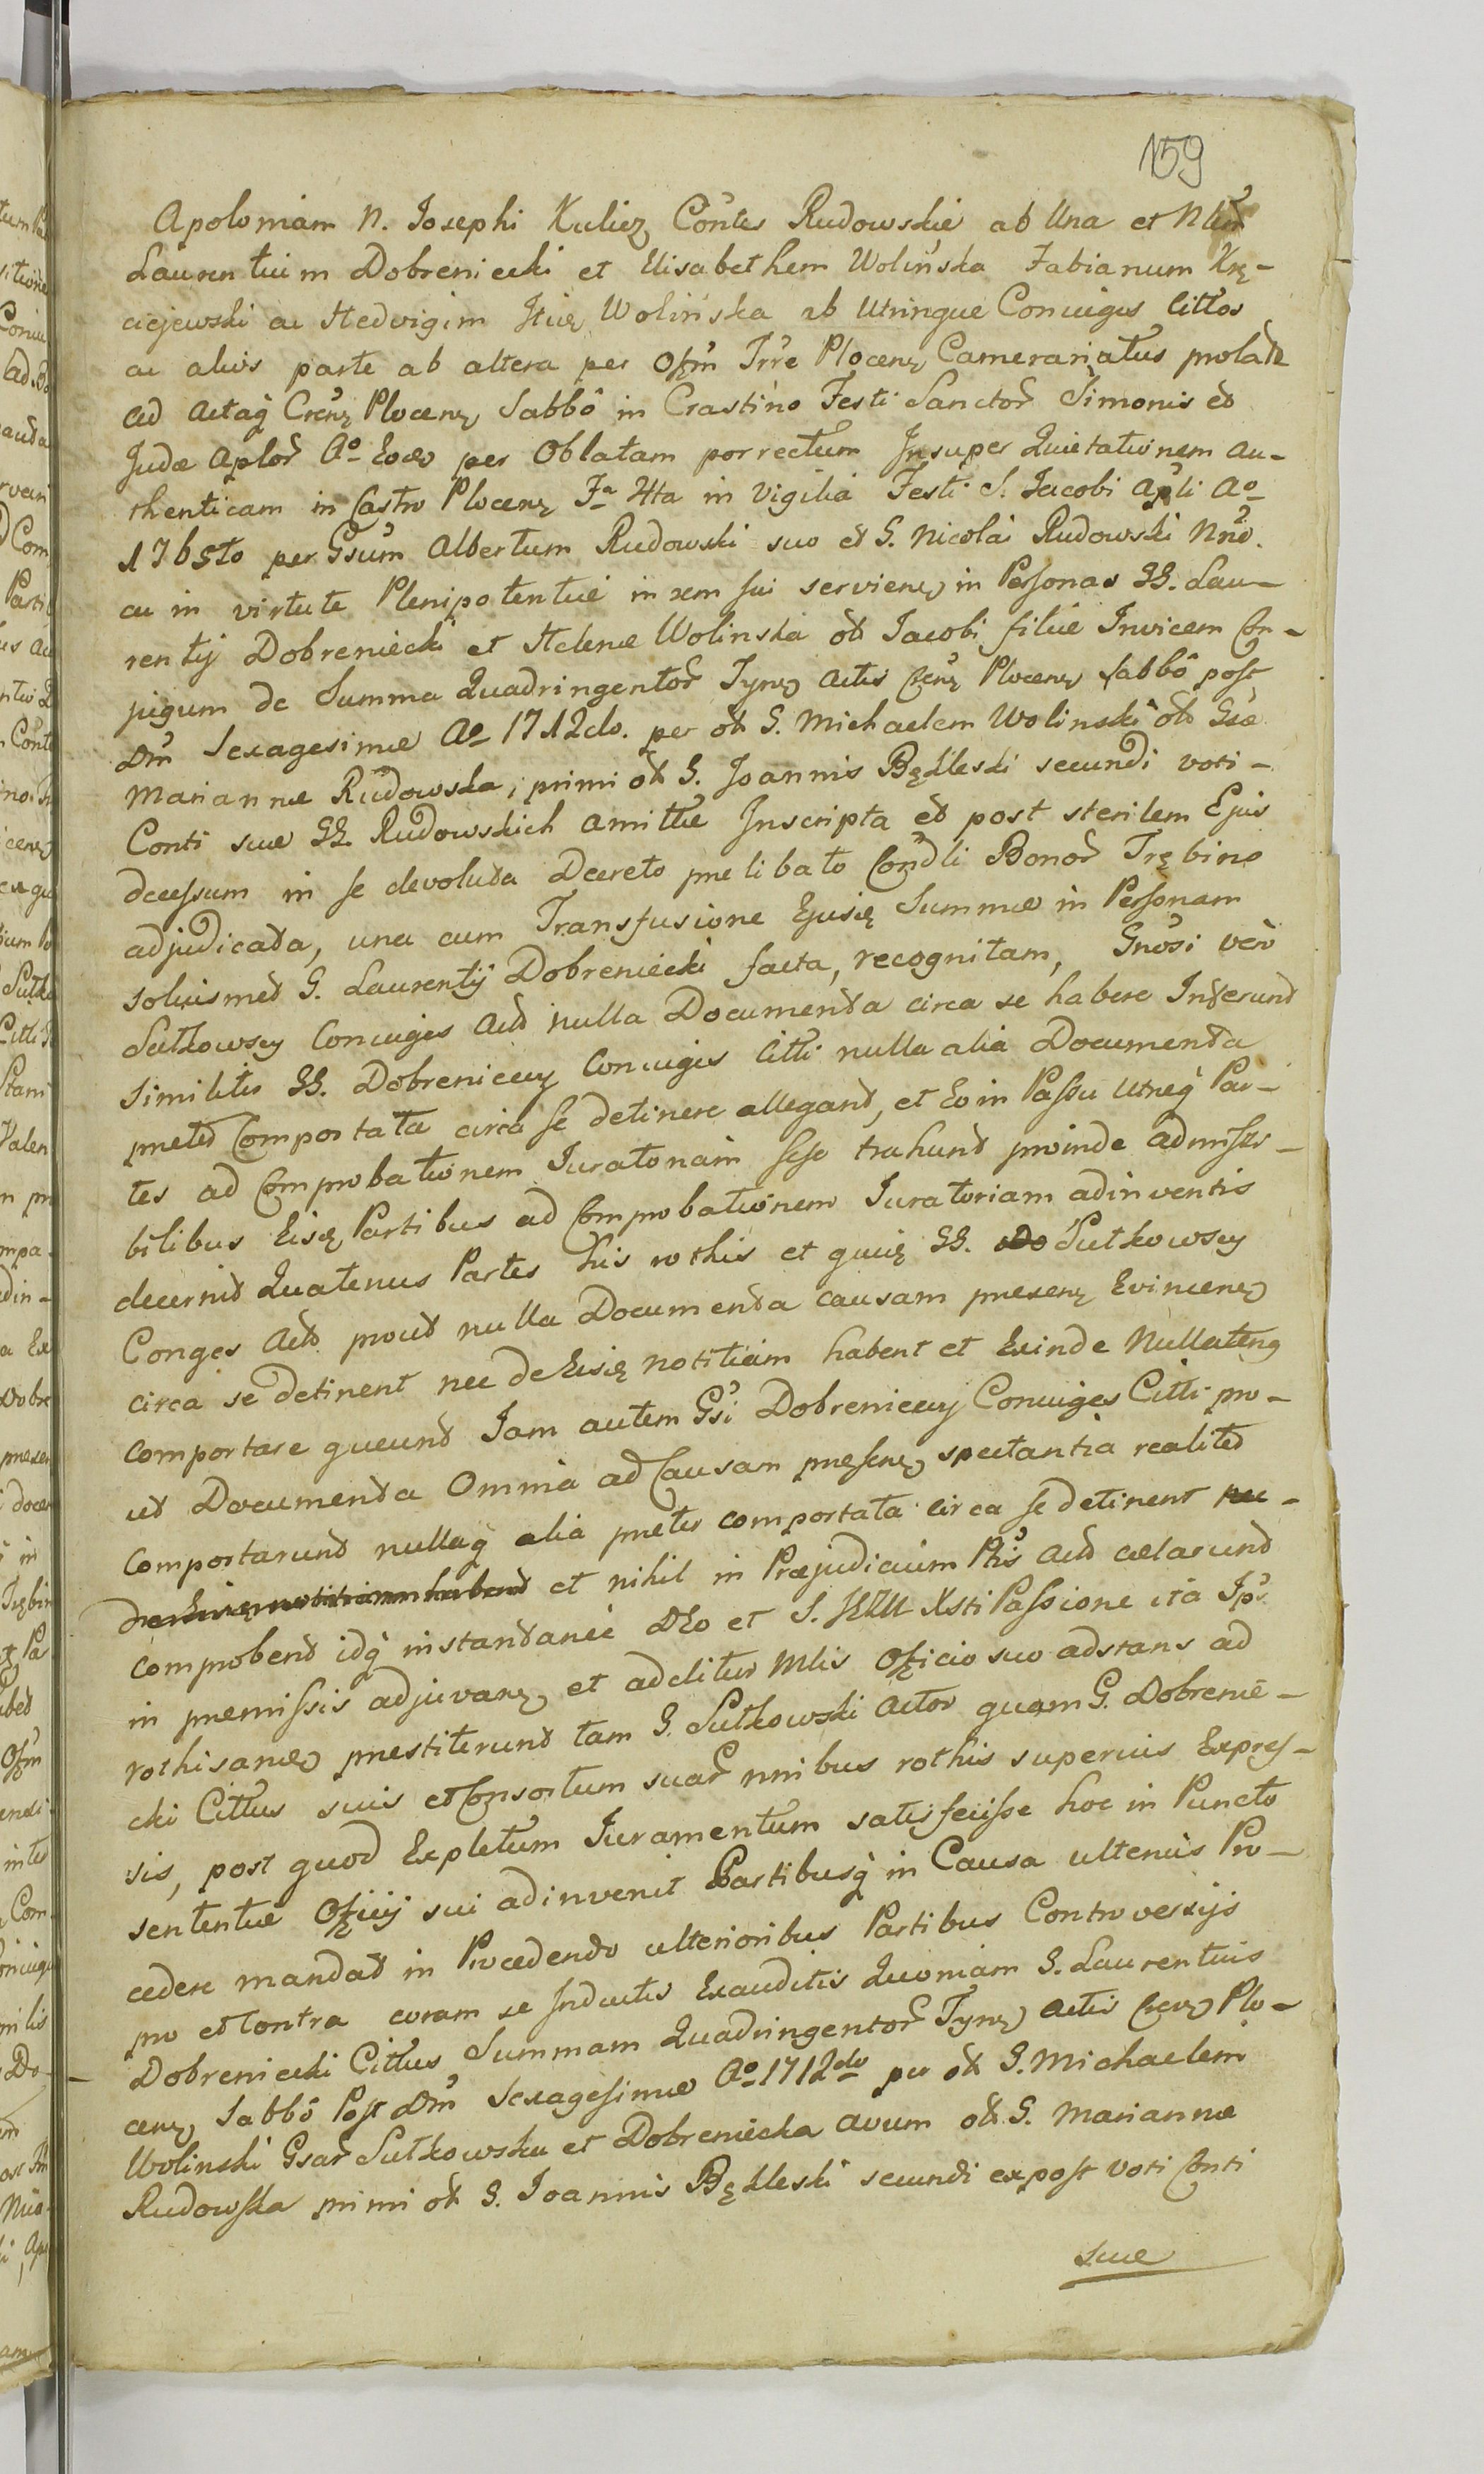 159
Apoloniam N. Josephi Kulicz Contes Rudowskie ab Una et Nlem
Laurentium Dobreniecki et Elisabethem Wolińska Fabianum Krę-
ciejewski ac Hedvigim Itię Wolińska ab Utrinque Coniuges Cittos
ac alios parte ab altera per Offm Trre Plocenę Camerariatus prolatæ
ad Actaq̃ Crenę Plocenę Sabbô in Crastino Festi Sanctor̃ Simonis et
Judæ Aplor̃ Aº Eodeo per Oblatam porrectum Insuper Quietationem au-
thenticam in Castro Plocenę Fª 4ta in Vigilia Festi S. Jacobi Apli Aº
1765to per Gsum Albertum Rudowski suo et G. Nicolai Rudowski Nnô.
ac in virtute Plenipotentiæ in rem sui servienę in Personas GG. Lau-
rentij Dobreniecki et Helenæ Wolinska olt Jacobi filiæ Invicem Con-
jugum de Summa Quadringentor̃ Tynę actis Crenę Plocenę Sabbô post
Dm̃ Sexagesimæ Aº 1712do. per olt G. Michaelem Wolinski olt Gsæ
Mariannæ Rudowska, primi olt G. Joannis Będleski secundi voti
Conti suæ GG. Rudowskich amittæ Inscripta et post sterilem Ejus
decessum in se devoluta Decreto prælibato Condli Bonor̃ Trębino
adjudicata, una cum Transfusione Ejusię Summæ in Personam
soluismet G. Laurentij Dobreniecki facta, recognitam, Gnosi verò
Sutkowscy Coniuges Act nulla Documenta circa se habere Inferunt
similiter GG. Dobrenieccy Coniuges Citti nulla alia Documenta
præter Comportata circa se detinere allegant, et Eo in Passu Utreq̃ Par-
tes ad Comprobationem Juratoriam sese trahunt proinde admissi-
bilibus Eisdę Partibus ad Comprobationem Juratoriam adinventis
decernit Quatenus Partes his rothis et quię GG. Sutkowscy
Conges Act. prout nulla Documenta causam præsenę Evincenę
circa se detinent nec de Eisię notitiam habent et Exinde Nullatenq
comportare queunt Jam autem Gsi Dobrenieccy Coniuges Citti pro-
ut Documenta Omnia ad Causam præsenę spectantia realiter
Comportarunt nullaq̃ alia præter comportata circa se detinent nec
de Eisię notitiam habent et nihil in Præjudicium Ptis Act celarunt
comprobent idq̃ instantanèe DEo et S. JEZU Xsti Passione ità Ips
in præmissis adjuvanę, et additur Mlis Officio suo adstans ad
rothisanę præstiterunt tam G. Sutkowski Actor quam G. Dobrenie-
cki Cittus suis et Consortum suar̃ nnibus rothis superius Expres-
sis, post quod Expletum Juramentum satisfecisse hoc in Puncto
sententiæ Officij sui adinvenit Partibusq̃ in Causa ulterius Pro-
cedere mandat in Procedendo ulterioribus Partibus Controversijs
pro et Contra coram se Inductis Exauditis Quoniam G. Laurentius
Dobreniecki Cittus Summam Quadringentor̃ Tynę actis Crenę Plo-
cenę Sabbô Post Dm̃ Sexagesimæ Aº 1712do per olt G. Michaelem
Wolinski Gsar̃ Sutkowska et Dobreniecka avum olt G. Mariannæ
Rudowska primi olt G. Joannis Będleski secundi expost voti Conti
suæ